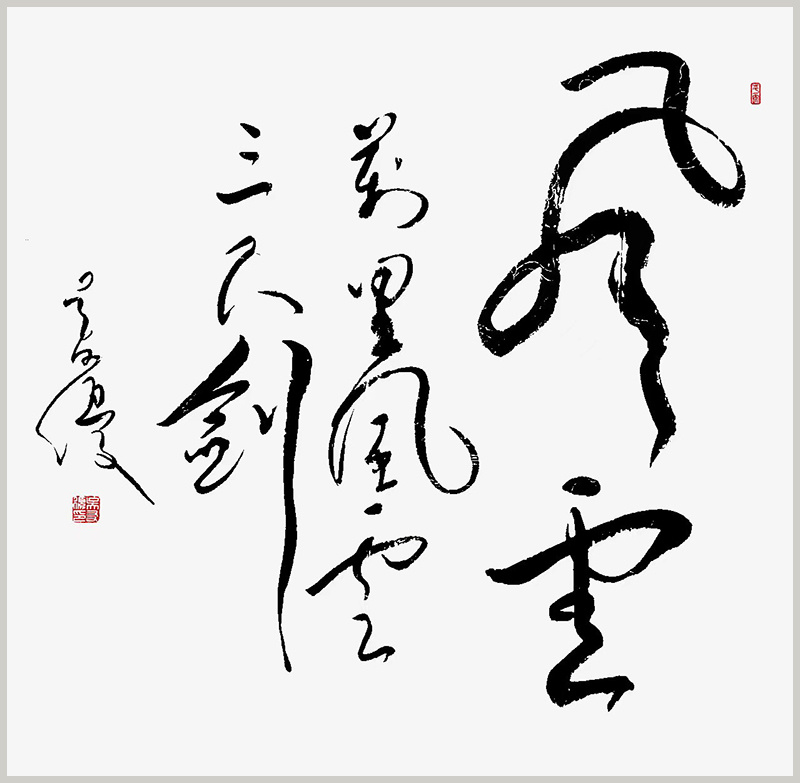 風雲
萬里風雲
三尺劍